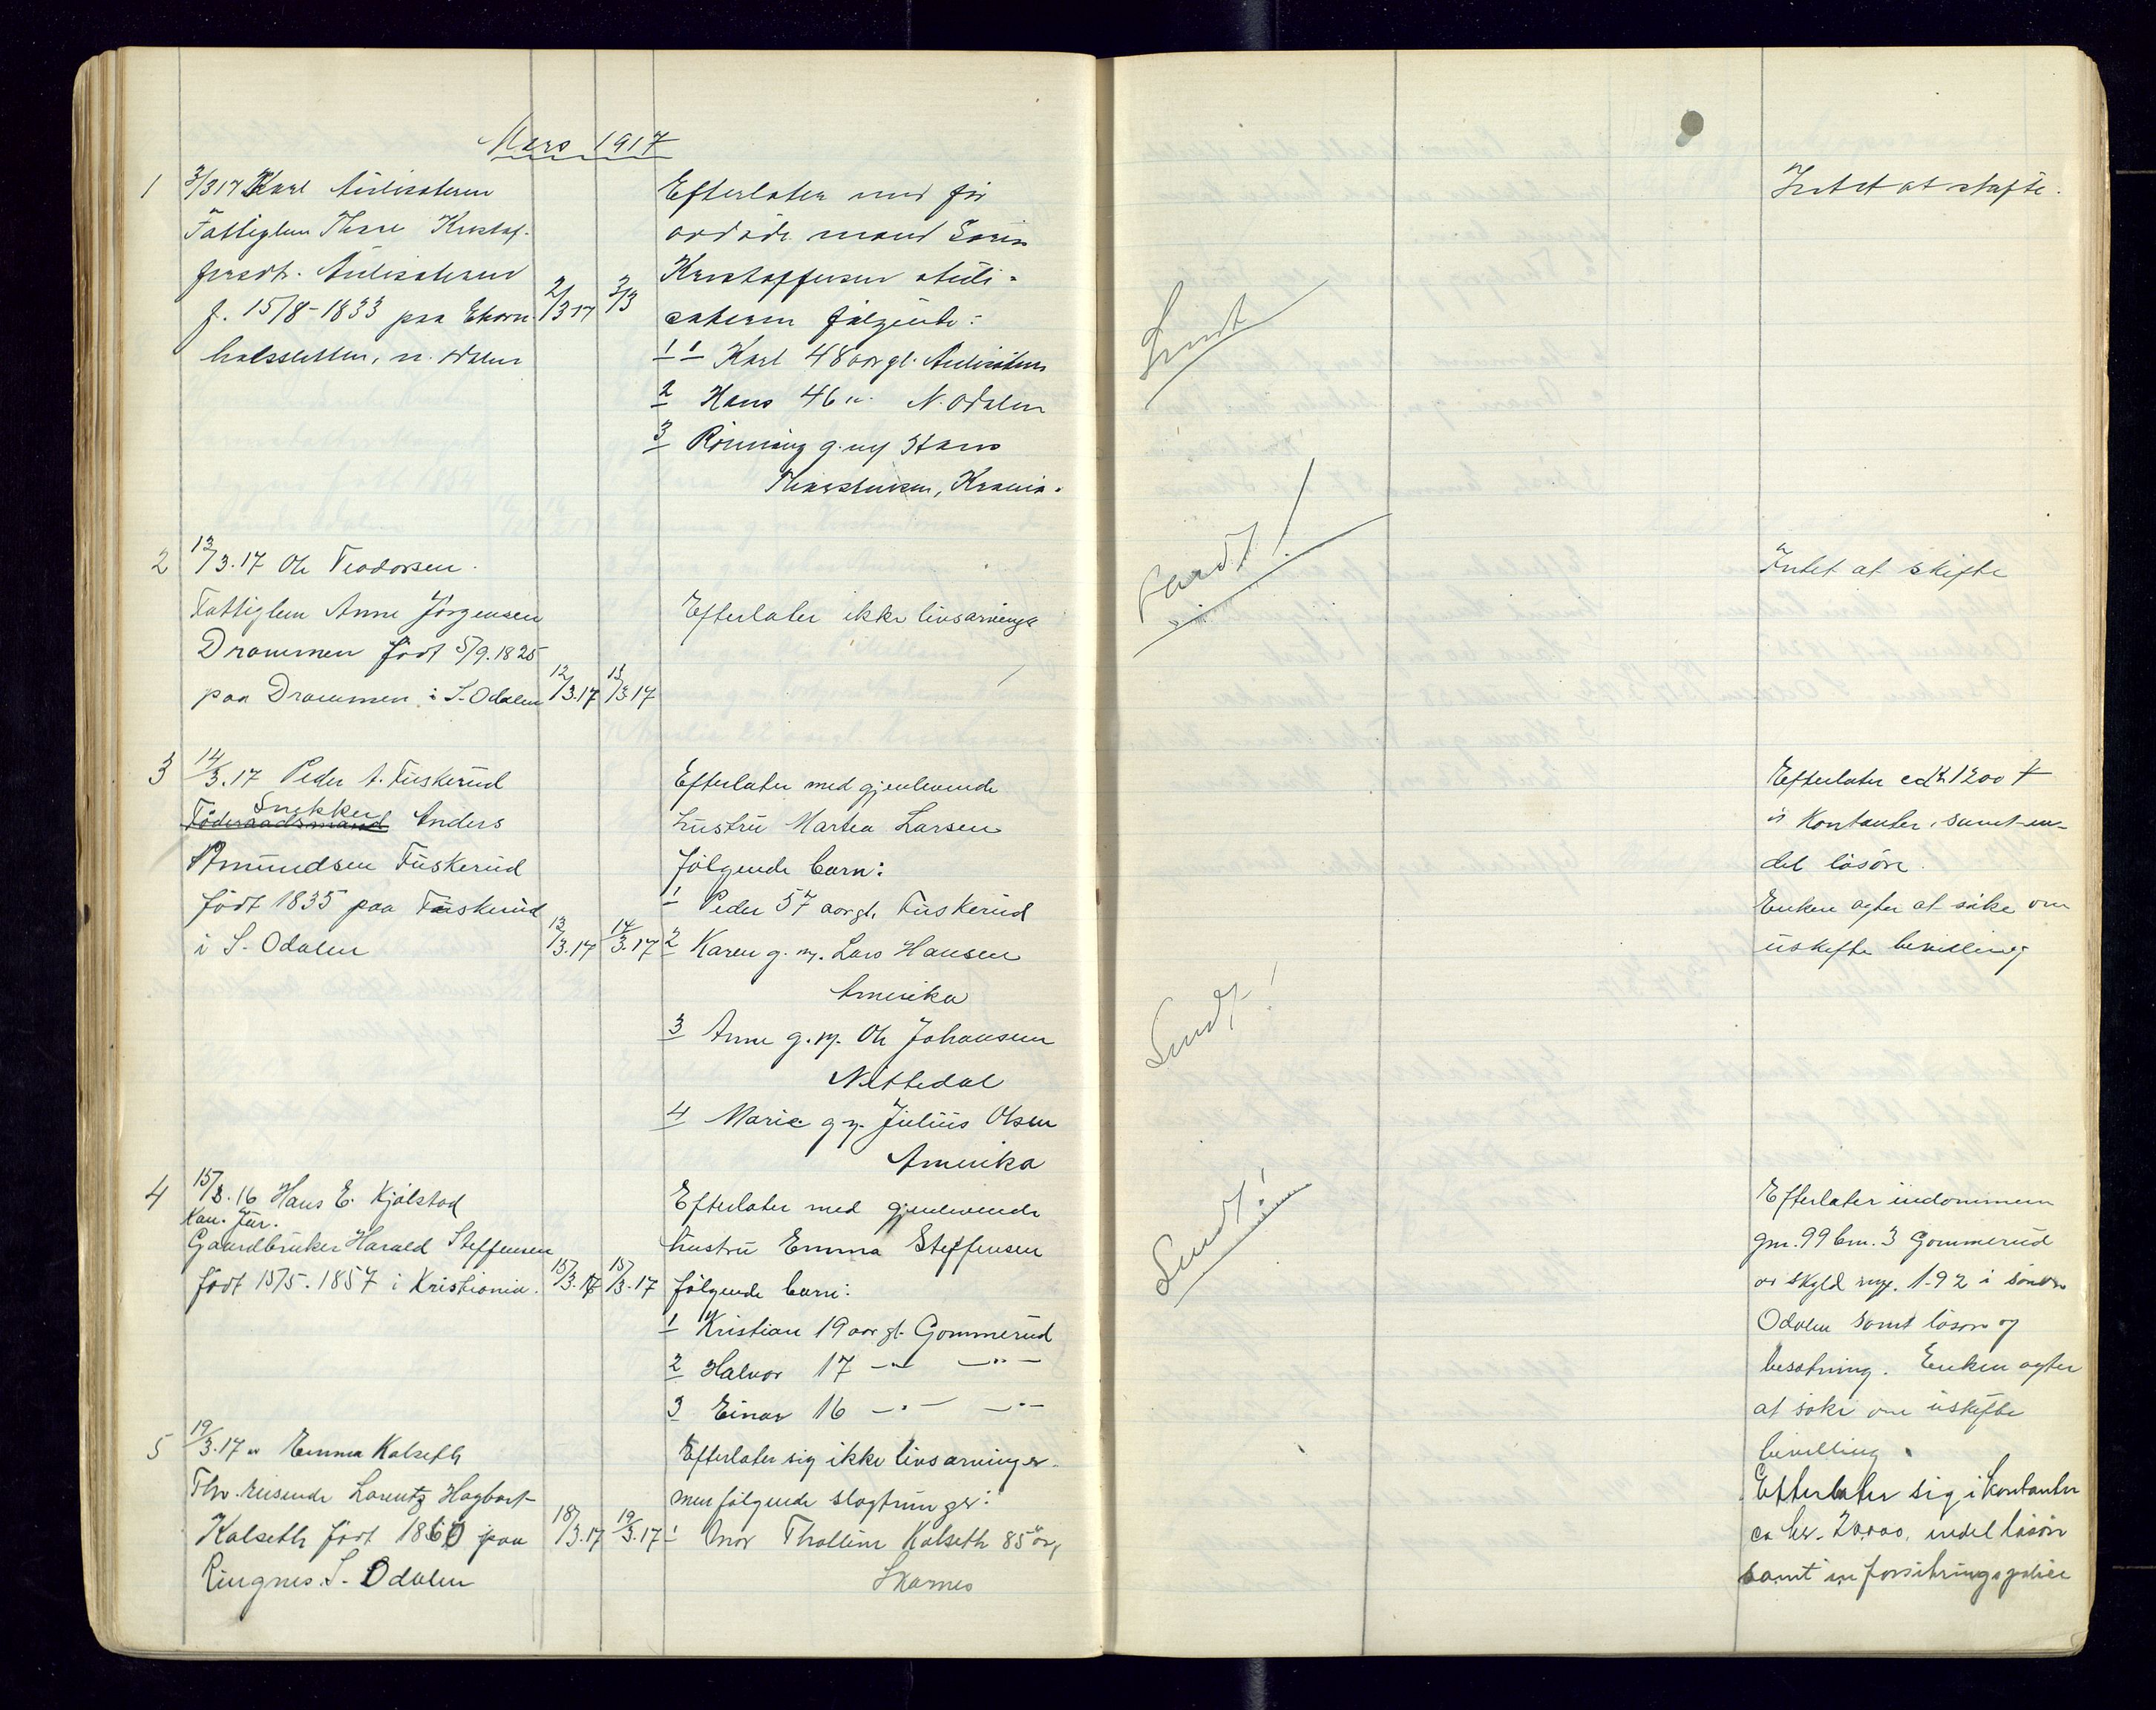 Mars 1917
1 3/3 17 Karl
Fattiglem Kristof-
f. 15/8-1833 paa Ekorn-
2/3 17 3/3
n. Odalen
Efterlater med før
avdøde mand
Kristoffersen
følgende:
1 Karl 48 aar gl.
2 Hans 46 " N. Odalen
3 g. m/ Hans
Krania.
Intet at skifte.
Sendt
2 13/3.17 Ole Teodorsen.
Fattiglem Anne Jørgensen
Drammen født 5/9.1825
paa Drammen i S. Odalen 12/3.17 13/3.17
Efterlater ikke livsarvinger
Sendt!
Intet at skifte
3 14/3.17 Peder A. Fuskerud
Snekker
Føderaadsmand Anders
Amundsen Fuskerud
født 1835 paa Fuskerud
i S. Odalen 13/3.17 14/3.17
Efterlater med gjenlevende
hustru Martea Larsen
følgende barn:
1 Peder 57 aar gl. Fuskerud
2 Karen g. m. Lars Hansen
Amerika
3 Anne g. m. Ole Johansen
Nittedal
4 Marie g. m. Julius Olsen
Amerika
Sendt!
Efterlater ca Kr 1200
i Kontanter, samt en-
del løsøre.
Enken agter at søke om
uskifte bevilling
4 15/3.16 Hans E. Kjølstad
Kan. Jur.
Gaardbruker Harald Steffensen
født 15/5.1857 i Kristiania. 15/3.17 15/3.17
Efterlater med gjenlevende
hustru Emma Steffensen
følgende barn:
1 Kristian 19 aar gl. Gommerud
2 Halvor 17 -"- -"-
3 Einar 16 -"- -"-
Sendt!
Efterlater eiendommen
gm. 99 bm. 3 Gommerud
av skyld 1.92 i søndre
Odalen samt løsøre og
besætning. Enken agter
at søke om uskifte
bevilling.
5 19/3.17 Emma Kalseth
Reisende Lorentz Hagbart
Kalseth født 1860 paa 18/3.17 19/3.17
Ringnes S. Odalen
Efterlater sig ikke livsarvinger.
men følgende slagtninger:
1 Mor Thalline Kalseth 85 aar
Skarnes
Efterlater sig i kontanter
ca kr. 20,000, endel løsøre
samt en forsikringspolise